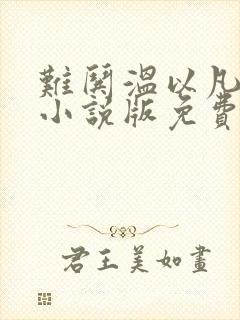 難鬨溫以凡
小說版免費
君王美如畫